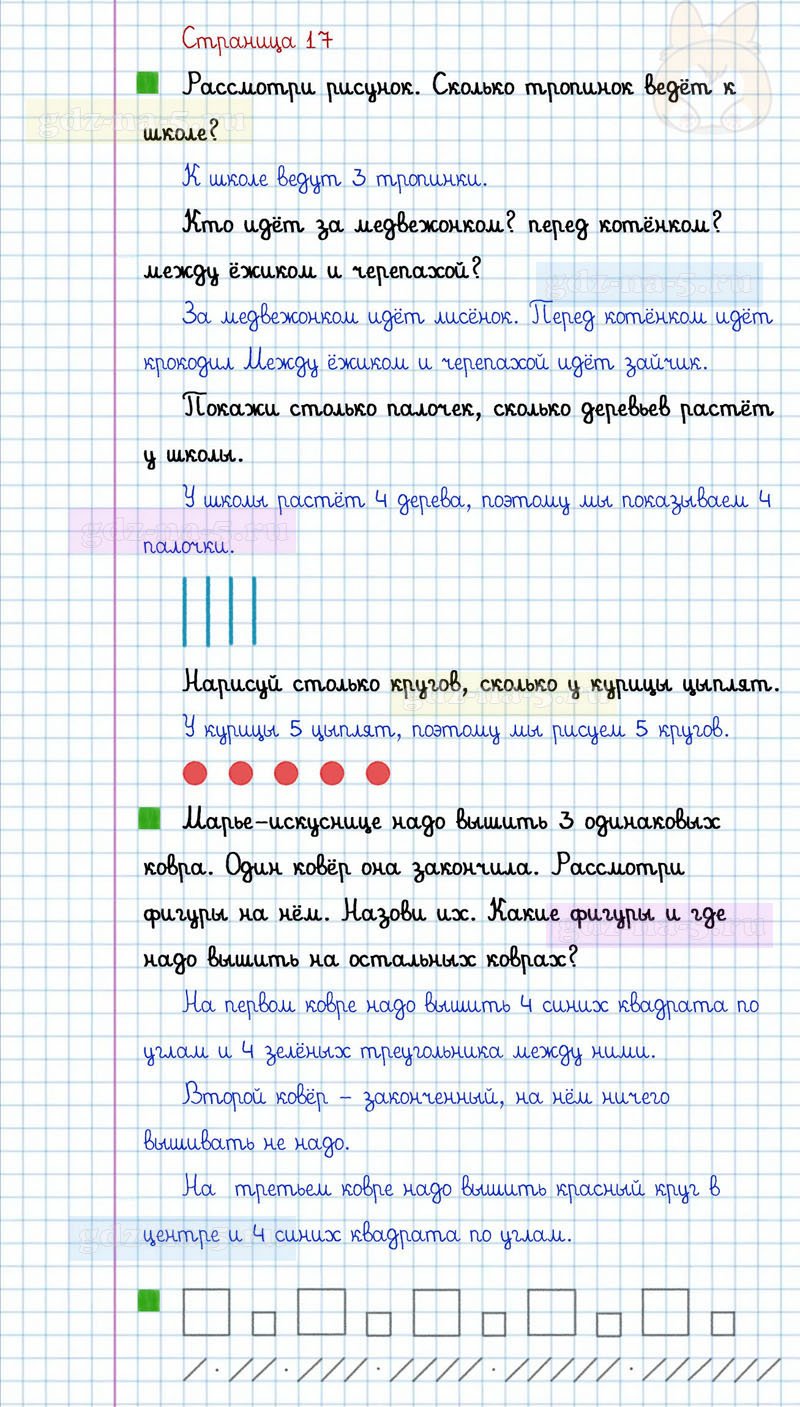 Страница 17
Рассмотри рисунок. Сколько тропинок ведёт к
gdz-na-5.ru
школе?
К школе ведут 3 тропинки.
Кто идёт за медвежонком? перед котёнком?
между ёжиком и черепахой?
gdz-na-5.ru
За медвежонком идёт лисёнок. Перед котёнком идёт
крокодил Между ёжиком и черепахой идёт зайчик.
Покажи столько палочек, сколько деревьев растёт
у школы.
У школы растёт 4 дерева, поэтому мы показываем 4
gdz-na-5.ru
палочки.
Нарисуй столько кругов, сколько у курицы цыплят.
gdz-na-5.ru
У курицы 5 цыплят, поэтому мы рисуем 5 кругов.
Марье-искуснице надо вышить 3 одинаковых
ковра. Один ковёр она закончила. Рассмотри
фигуры на нём. Назови их. Какие фигуры и где
gdz-na-5.ru
надо вышить на остальных коврах?
На первом ковре надо вышить 4 синих квадрата по
углам и 4 зелёных треугольника между ними.
Второй ковёр – законченный, на нём ничего
вышивать не надо.
На третьем ковре надо вышить красный круг в
центре и 4 синих квадрата по углам.
gdz-na-5.ru